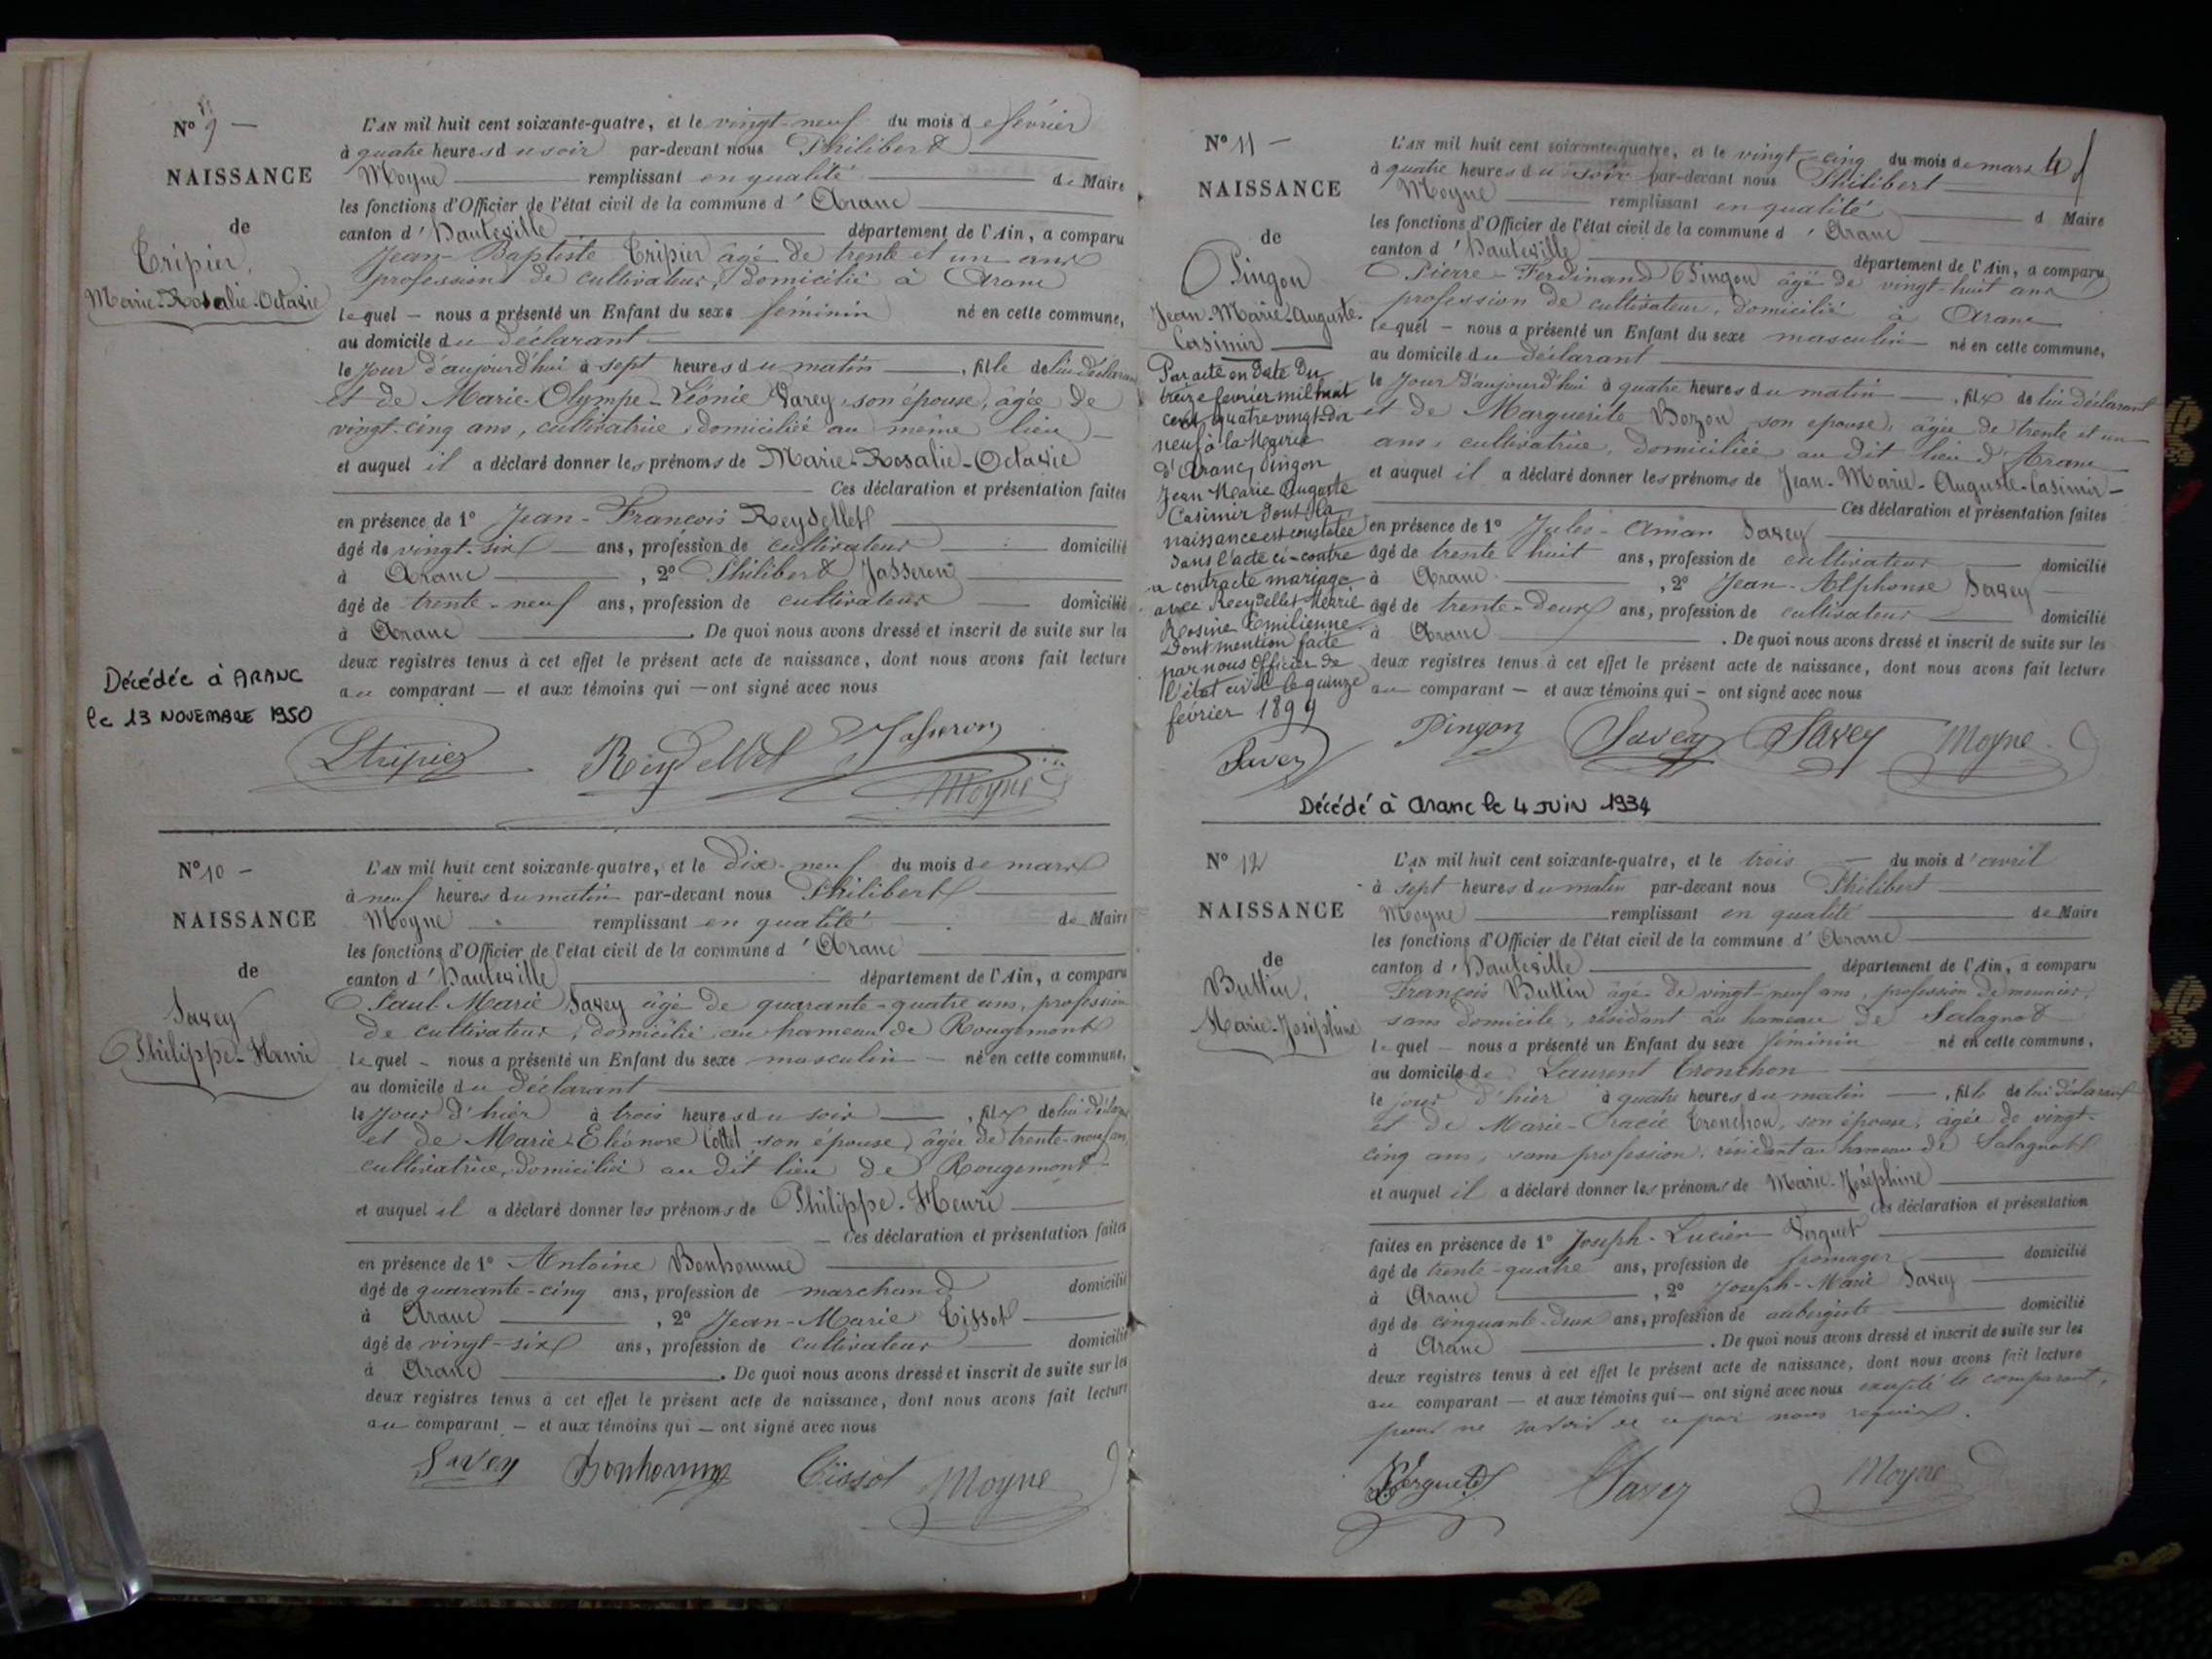 Nº 9 —
NAISSANCE
de
Tripier,
Marie-Rosalie-Octavie
Décédée à ARANC
le 13 NOVEMBRE 1950
L'AN mil huit cent soixante-quatre, et le vingt-neuf du mois de février
à quatre heures du soir par-devant nous Philibert
Moyne remplissant en qualité de Maire
les fonctions d'Officier de l'état civil de la commune d'Aranc
canton d'Hauteville département de l'Ain, a comparu
Jean-Baptiste Tripier âgé de trente et un ans
profession de cultivateur, domicilié à Aranc
lequel — nous a présenté un Enfant du sexe féminin né en cette commune,
au domicile du déclarant
le jour d'aujourd'hui à sept heures du matin —, fille de lui déclarant
et de Marie-Olympe-Léonie Varey, son épouse, âgée de
vingt-cinq ans, cultivatrice, domiciliée au même lieu —
et auquel il a déclaré donner les prénoms de Marie-Rosalie-Octavie
Ces déclaration et présentation faites
en présence de 1º Jean-François Reydellet
âgé de vingt-six — ans, profession de cultivateur — domicilié
à Aranc —, 2º Philibert Jasseron
âgé de trente-neuf ans, profession de cultivateur — domicilié
à Aranc —. De quoi nous avons dressé et inscrit de suite sur les
deux registres tenus à cet effet le présent acte de naissance, dont nous avons fait lecture
au comparant — et aux témoins qui — ont signé avec nous
Reydellet Jasseron
Moyne
Nº 10 —
NAISSANCE
de
Savey
Philippe-Henri
L'AN mil huit cent soixante-quatre, et le dix-neuf du mois de mars
à neuf heures du matin par-devant nous Philibert
Moyne remplissant en qualité de Maire
les fonctions d'Officier de l'état civil de la commune d'Aranc
canton d'Hauteville département de l'Ain, a comparu
Paul-Marie Savey âgé de quarante-quatre ans, profession
de cultivateur, domicilié au hameau de Rougemont
lequel — nous a présenté un Enfant du sexe masculin — né en cette commune,
au domicile du déclarant
le jour d'hier à trois heures du soir —, fils de lui déclarant
et de Marie-Eléonore Cottel son épouse, âgée de trente-neuf ans,
cultivatrice, domiciliée au dit lieu de Rougemont
et auquel il a déclaré donner les prénoms de Philippe-Henri
Ces déclaration et présentation faites
en présence de 1º Antoine Bonhomme
âgé de quarante-cinq ans, profession de marchand domicilié
à Aranc —, 2º Jean-Marie Tissot
âgé de vingt-six ans, profession de cultivateur — domicilié
à Aranc —. De quoi nous avons dressé et inscrit de suite sur les
deux registres tenus à cet effet le présent acte de naissance, dont nous avons fait lecture
au comparant — et aux témoins qui — ont signé avec nous
Savey Bonhomme Tissot Moyne
Nº 11 —
NAISSANCE
de
Pingon
Jean-Marie-Auguste-
Casimir
Par acte en date du
treize février mil huit
cent quatre vingt-dix
neuf à la Mairie
d'Aranc, Pingon
Jean Marie Auguste
Casimir dont la
naissance est constatée
dans l'acte ci-contre
a contracté mariage
avec Reydellet Marie
Rosine Emilienne
Dont mention faite
par nous Officier de
l'état civil le quinze
février 1899
Savey
L'AN mil huit cent soixante-quatre, et le vingt-cinq du mois de mars
à quatre heures du soir par-devant nous Philibert
Moyne remplissant en qualité d Maire
les fonctions d'Officier de l'état civil de la commune d'Aranc
canton d'Hauteville département de l'Ain, a comparu
Pierre-Ferdinand Pingon âgé de vingt-huit ans
profession de cultivateur, domicilié à Aranc
lequel — nous a présenté un Enfant du sexe masculin — né en cette commune,
au domicile du déclarant
le jour d'aujourd'hui à quatre heures du matin —, fils de lui déclarant
et de Marguerite Bozon son épouse, âgée de trente et un
ans, cultivatrice, domiciliée au dit lieu d'Aranc
et auquel il a déclaré donner les prénoms de Jean-Marie-Auguste-Casimir —
Ces déclaration et présentation faites
en présence de 1º Jules-Aman Savey
âgé de trente huit ans, profession de cultivateur — domicilié
à Aranc —, 2º Jean-Alphonse Savey
âgé de trente-deux ans, profession de cultivateur — domicilié
à Aranc —. De quoi nous avons dressé et inscrit de suite sur les
deux registres tenus à cet effet le présent acte de naissance, dont nous avons fait lecture
au comparant — et aux témoins qui — ont signé avec nous
Pingon Savey Savey Moyne
Décédé à Aranc le 4 JUIN 1934
Nº 12
NAISSANCE
de
Buttin,
Marie-Joséphine
L'AN mil huit cent soixante-quatre, et le trois — du mois d'avril
à sept heures du matin par-devant nous Philibert
Moyne remplissant en qualité de Maire
les fonctions d'Officier de l'état civil de la commune d'Aranc
canton d'Hauteville département de l'Ain, a comparu
François Buttin âgé de vingt-neuf ans, profession de meunier,
sans domicile, résidant au hameau de Patagnat
lequel — nous a présenté un Enfant du sexe féminin né en cette commune,
au domicile de Laurent Tronchon
le jour d'hier à quatre heures du matin —, fille de lui déclarant
et de Marie- Tronchon, son épouse, âgée de vingt-
cinq ans, sans profession, résidant au hameau de
et auquel il a déclaré donner les prénoms de Marie-Joséphine
Ces déclaration et présentation
faites en présence de 1º Joseph-Lucien Verguet
âgé de trente-quatre ans, profession de fromager domicilié
à Aranc —, 2º Joseph-Marie Savey
âgé de cinquante-deux ans, profession de aubergiste domicilié
à Aranc —. De quoi nous avons dressé et inscrit de suite sur les
deux registres tenus à cet effet le présent acte de naissance, dont nous avons fait lecture
au comparant — et aux témoins qui — ont signé avec nous excepté le comparant,
pour ne savoir de ce par nous requis.
Verguet Savey Moyne